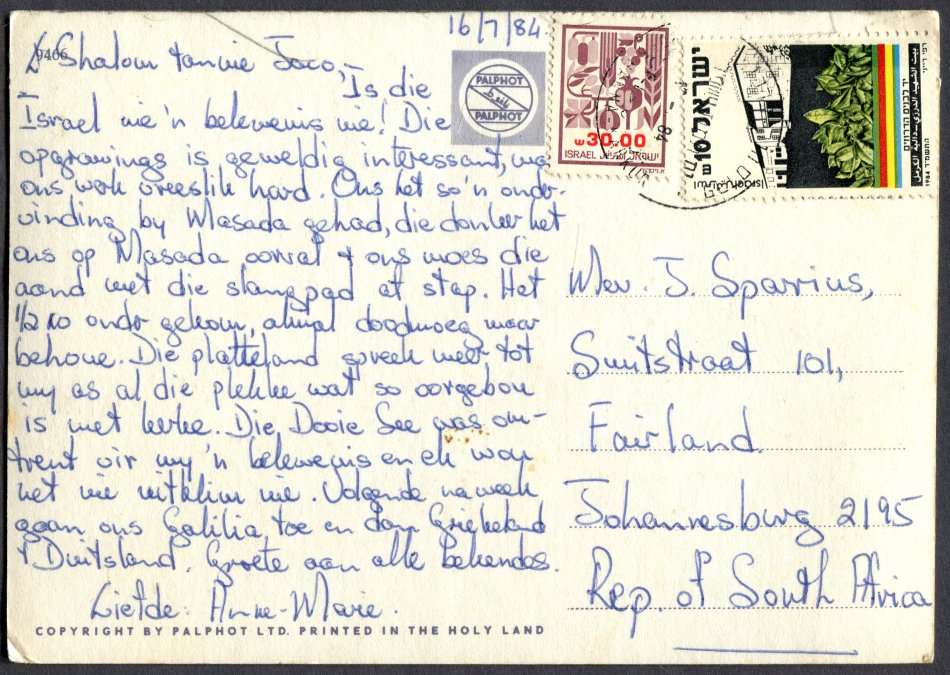 16/7/84
9466
Shalom tannie Jaco,
Is die
Israel nie 'n belewenis nie! Die
opgrawings is geweldig interessant, maar
ons werk vreeslik hard. Ons het so'n onder-
vinding by Masada gehad, die donker het
ons op Masada oorval & ons moes die
aand met die slangpad af stap. Het
½10 onder gekom, almal doodmoeg maar
behoue. Die platteland spreek meer tot
my as al die plekke wat so oorgebou
is met kerke. Die Dooie See was om-
trent vir my 'n belewenis en ek wou
net nie uitklim nie. Volgende naweek
gaan ons Galilia toe en dan Griekeland
& Duitsland. Groete aan alle bekendes.
Liefde: Anne-Marie.
COPYRIGHT BY PALPHOT LTD. PRINTED IN THE HOLY LAND
PALPHOT
PALPHOT
30.00
ISRAEL
ישראל
ישראל
10
1984
Mev. J. Sparius,
Smitstraat 101,
Fairland
Johannesburg 2195
Rep. of South Africa